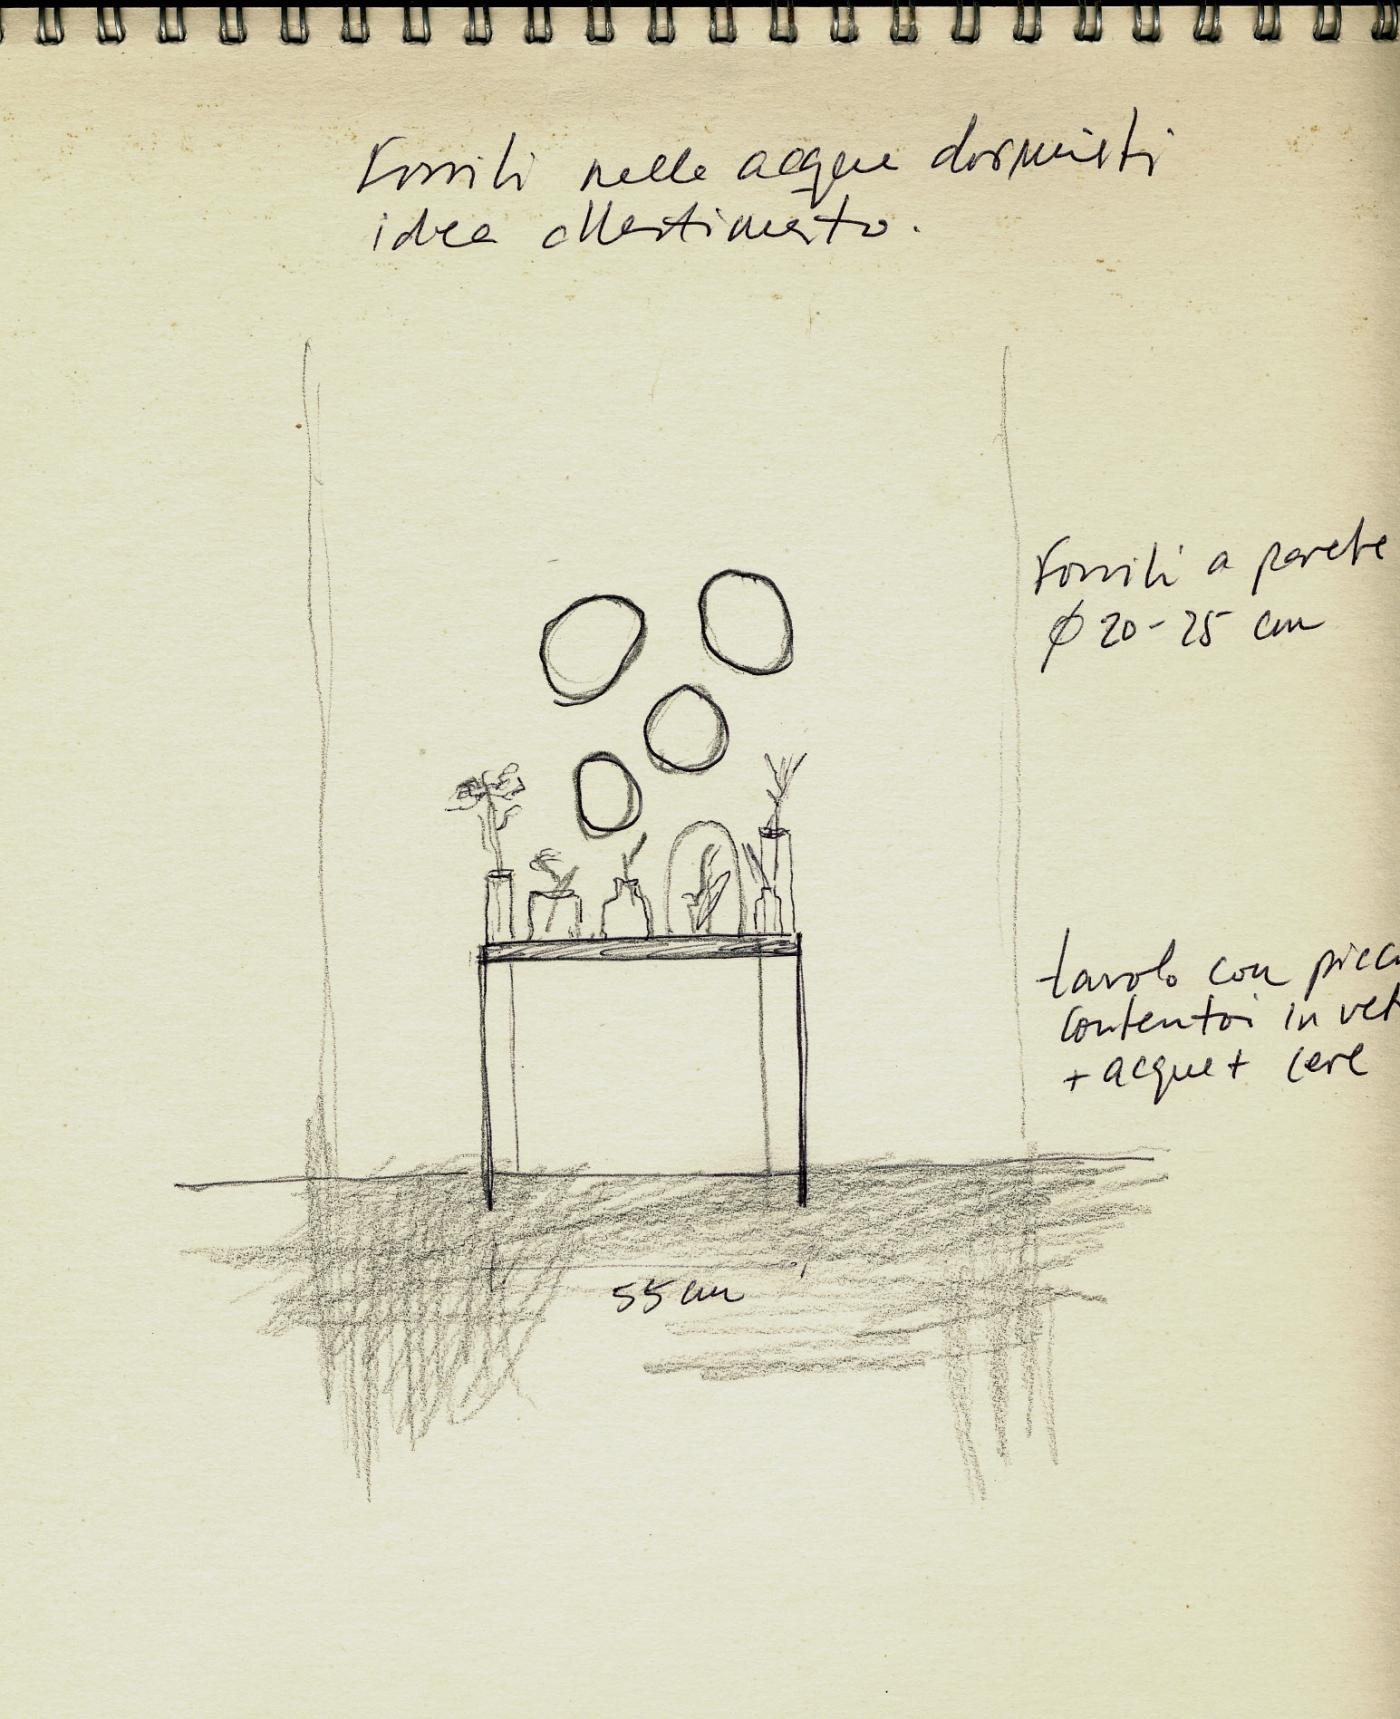 Fossili nelle acque dormienti
idea allestimento.
Fossili a parete
Ø 20-25 cm
tavolo con picc
contenitori in vet
+ acque + cere
55 cm